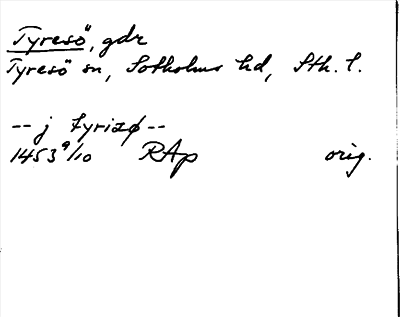 Tyresö, gdr
Tyresö sn, Sotholms hd, Sth. l.
-- j tyrizø --
1453 9/10 RAp orig.